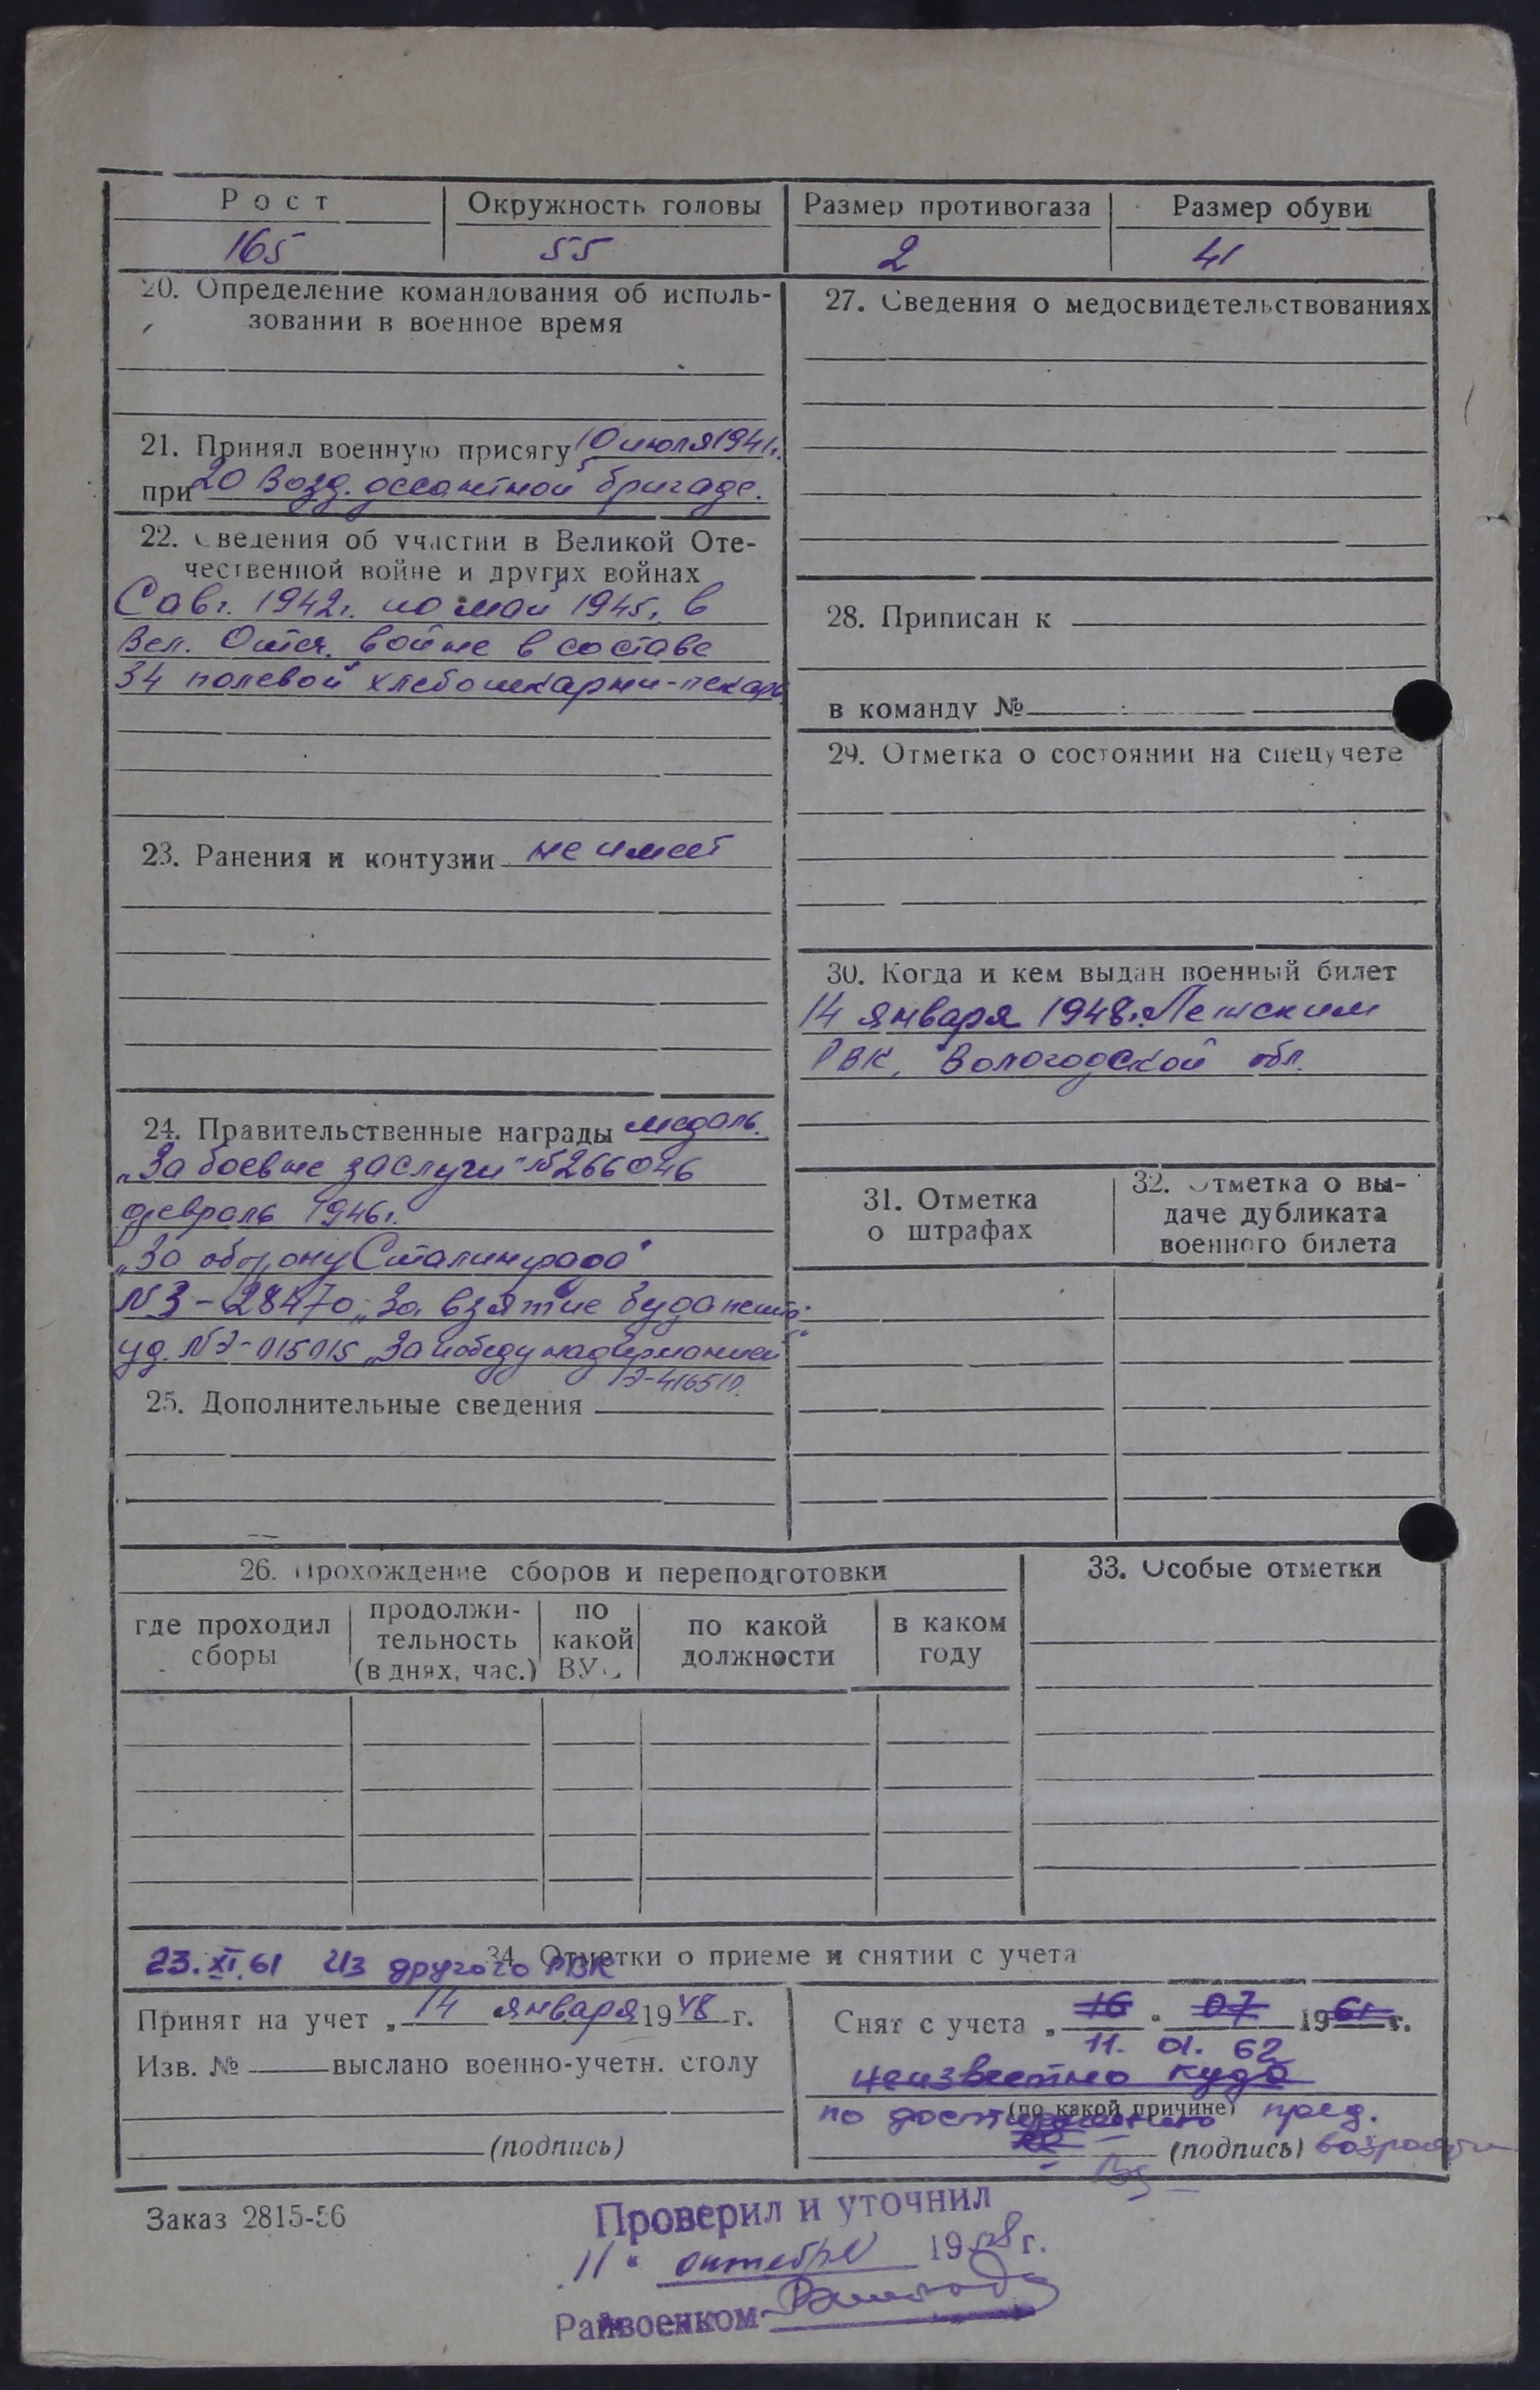 Рост
Окружность головы
Размер противогаза
Размер обуви
165
55
2
41
20. Определение командования об исполь-
зовании в военное время
21. Принял военную присягу 10 июля 1941г.
при 20 возд. дессантной бригаде.
22. Сведения об участии в Великой Оте-
чественной войне и других войнах
С авг. 1942г. по май 1945г. в
Вел. Отеч. войне в составе
34 полевой хлебопекарни-пекарь
23. Ранения и контузии не имеет
24. Правительственные награды медаль
„За боевые заслуги" №266046
февраль 1946г.
„За оборону Сталинграда"
№З-28470, „За взятие Будапешта"
уд. №Э-015015 „За победу над Германией"
Э-416510.
25. Дополнительные сведения
27. Сведения о медосвидетельствованиях
28. Приписан к
в команду №
29. Отметка о состоянии на спецучете
30. Когда и кем выдан военный билет
14 января 1948г.
РВК, Вологодской обл.
31. Отметка
о штрафах
32. Отметка о вы-
даче дубликата
военного билета
26. Прохождение сборов и переподготовки
где проходил
сборы
продолжи-
тельность
(в днях, час.)
по
какой
ВУС
по какой
должности
в каком
году
33. Особые отметки
34. Отметки о приеме и снятии с учета
23.XI.61 Из другого РВК
Принят на учет „ 14 января 1948 г.
Изв. № выслано военно-учетн. столу
(подпись)
Снят с учета „ 16 " 07 1961 г.
11. 01. 62
неизвестно куда
(по какой причине)
по достижению пред.
(подпись) возраста
Заказ 2815-56
Проверил и уточнил
„11" октября 1958 г.
Райвоенком